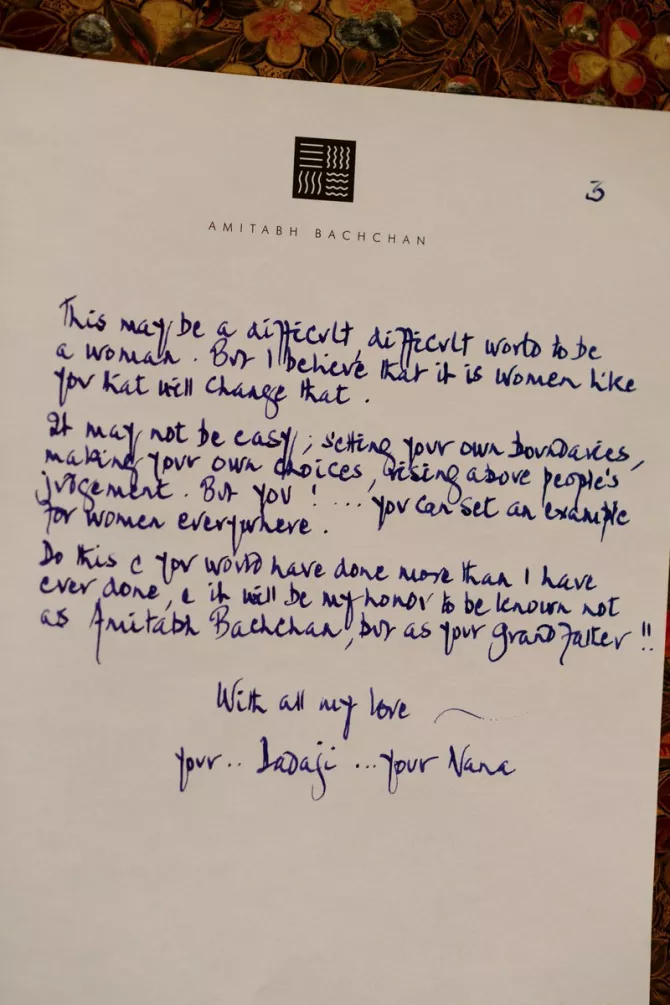 3
AMITABH BACHCHAN
This may be a difficult, difficult world to be
a woman. But I believe that it is women like
you that will change that.
It may not be easy; setting your own boundaries,
making your own choices, rising above people's
judgement. But you! ... you can set an example
for women everywhere.
Do this & you would have done more than I have
ever done, & it will be my honor to be known not
as Amitabh Bachchan, but as your grandfather!!
With all my love
your.. Dadaji ...your Nana